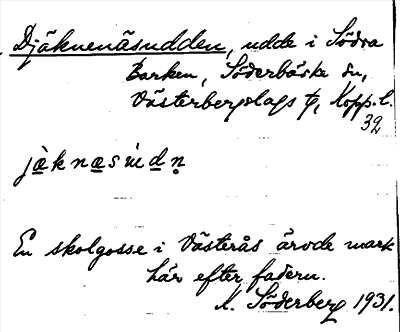 Djäknenäsudden, udde i Södra
Barken, Söderbärke sn,
Västerbergslags tg, Kopp. l.
39
jä̀knæsu̇́dn̥
En skolgosse i Västerås ärvde mark
här efter fadern.
A. Söderberg 1931.